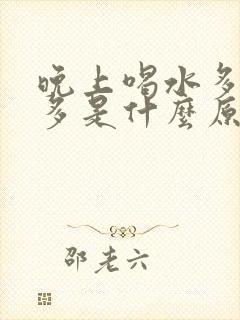 晚上喝水多
多是什麼原
邵老六